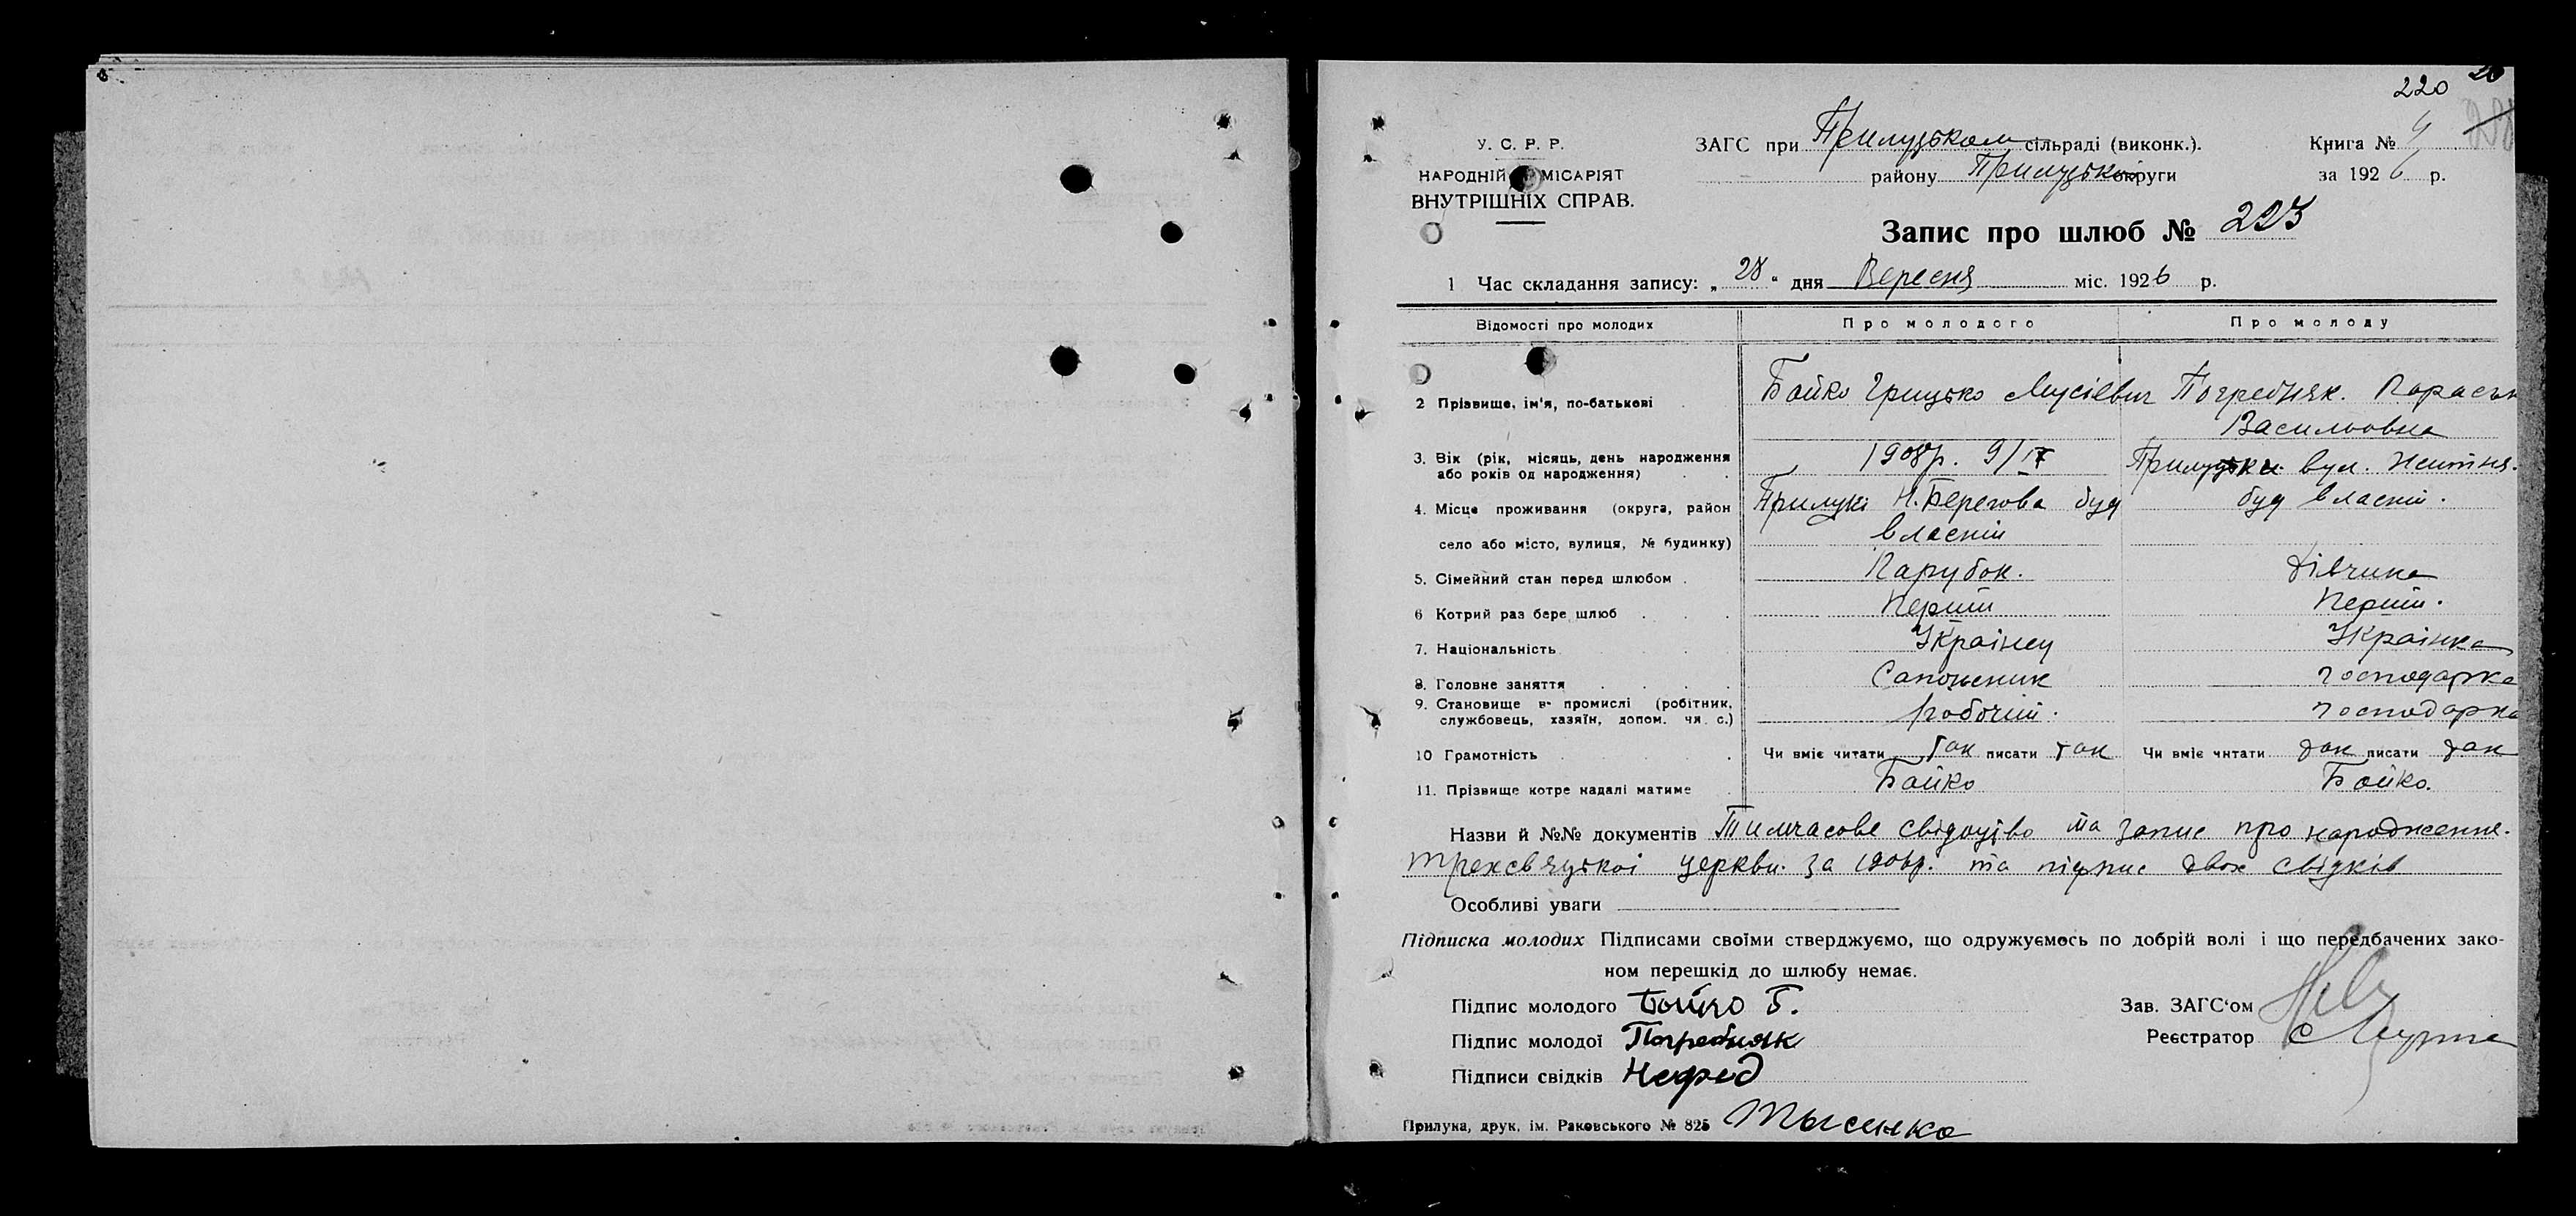 220
У. С. Р. Р.
НАРОДНІЙ МІСАРІЯТ
ВНУТРІШНІХ СПРАВ.
ЗАГС при Прилуцьком сільраді (виконк.).
району Прилуцької округи
Книга № 4
за 1926 р.
Запис про шлюб № 223
1 Час складання запису: „28“ дня Вересня міс. 1926 р.
Відомості про молодих Про молодого Про молоду
2 Прізвище, ім'я, по-батькові Бойко Грицько Мусієвич Погребняк. Параська
Васильовна
3. Вік (рік, місяць, день народження
або років од народження) 1908р. 9/IX Прилуцьки вул. Житня.
4. Місце проживання (округа, район
село або місто, вулиця, № будинку) Прилуки Н. Берегова буд
власний
буд власний.
5. Сімейний стан перед шлюбом Парубок. дівчина
6 Котрий раз бере шлюб Перший Перший.
7. Національність Українец Українка
8. Головне заняття Сапожник господарка
9. Становище в промислі (робітник,
службовець, хазяїн, допом. чл. с.) робочий. господарка
10 Грамотність Чи вміє читати так писати так Чи вміє читати так писати так
11. Прізвище котре надалі матиме Бойко Бойко.
Назви й №№ документів Тимчасове свідоцтво та запис про народження.
трехсвяцької церкви. за та підпис двох свідків
Особливі уваги
Підписка молодих Підписами своїми стверджуємо, що одружуємось по добрій волі і що передбачених зако-
ном перешкід до шлюбу немає.
Підпис молодого Бойко Г.
Підпис молодої Погребняк
Підписи свідків
Зав. ЗАГС'ом
Реєстратор
Прилука, друк. ім. Раковського № 825